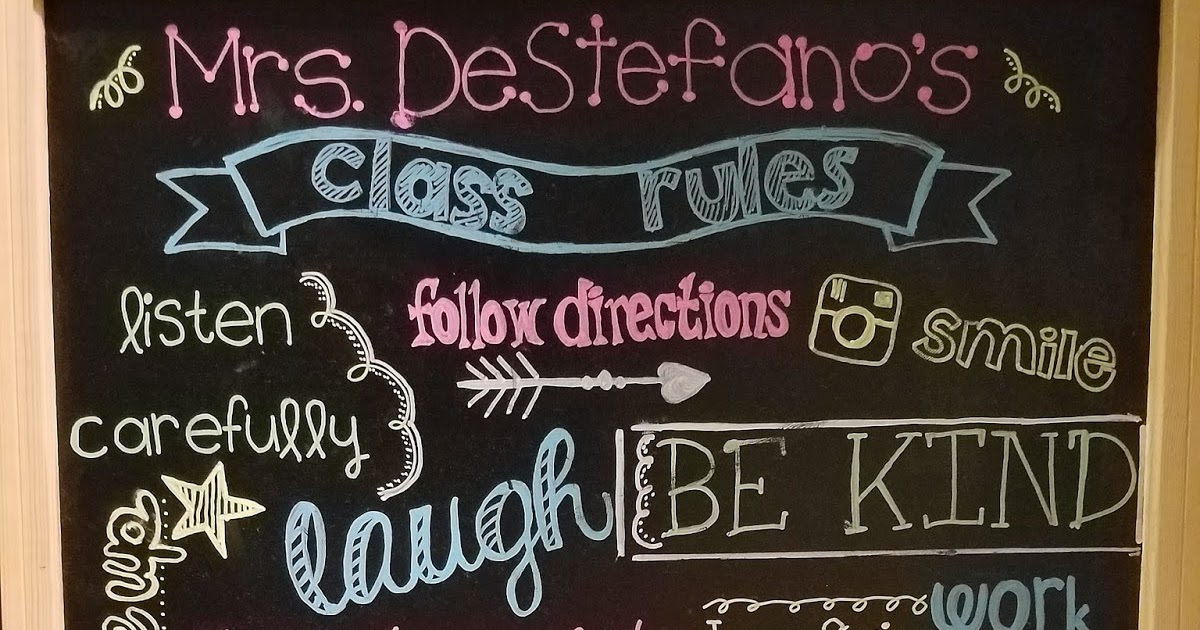 Mrs. DeStefano's
class rules
listen
carefully
follow directions
smile
laugh
BE KIND
work